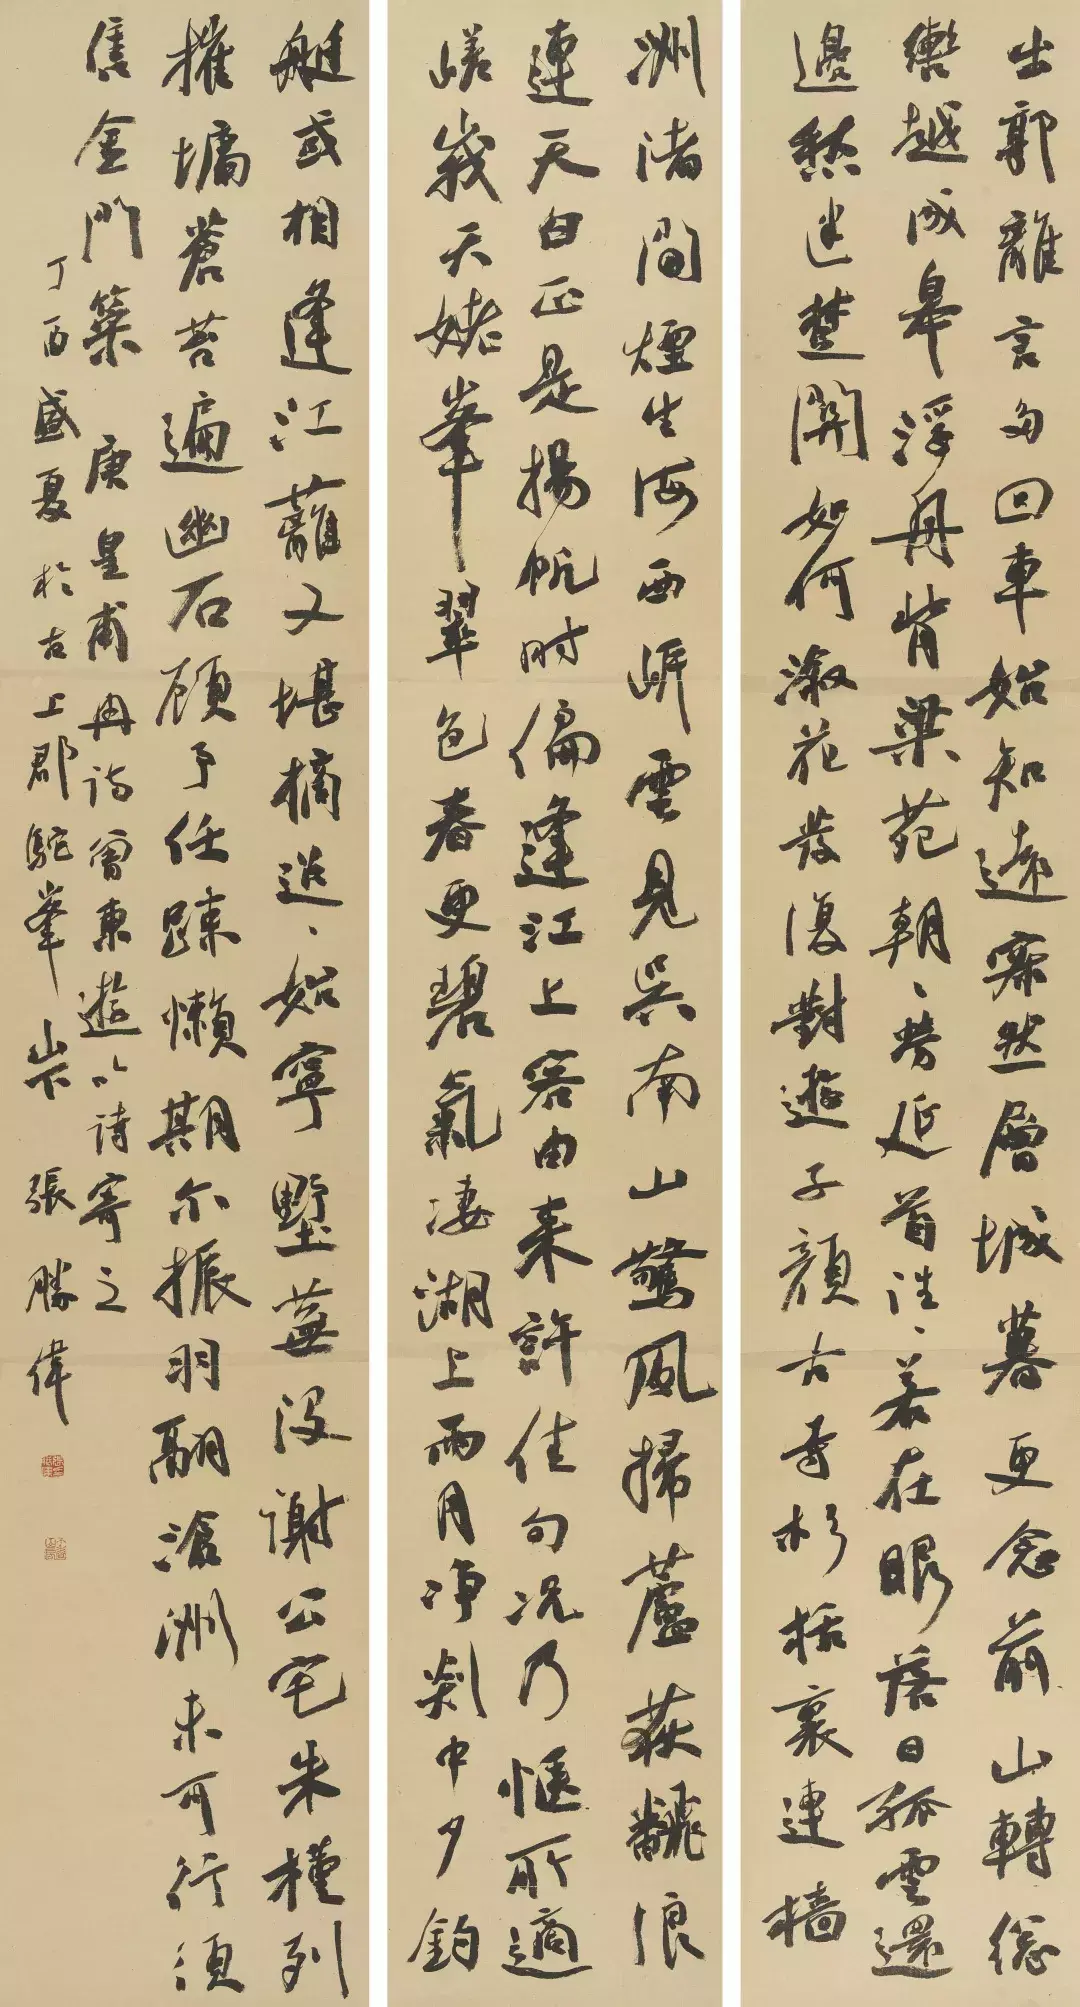 出郭離言多回車始知遠寂然層城暮更念前山轉總
轡越成皋浮舟背梁苑朝〻勞延首往〻若在眼落日孤雲還
邊愁迷楚關如何漵花發復對遊子顏古寺杉栝裏連檣
洲渚間煙生海西岸雲見吳南山驚風掃蘆荻飜浪
連天白正是揚帆时偏逢江上客由来許佳句况乃愜所適
嵯峩天姥峯翠色春更碧氣凄湖上雨月净剡中夕釣
艇或相逢江蘺又堪摘迢〻始寧墅蕪没謝公宅朱槿列
摧墉蒼苔遍幽石顧予任疎懶期尔振羽翮滄洲未可行須
售金門策 唐皇甫冉詩曾東遊以詩寄之
丁酉盛夏於古上郡駝峯山下 張勝偉